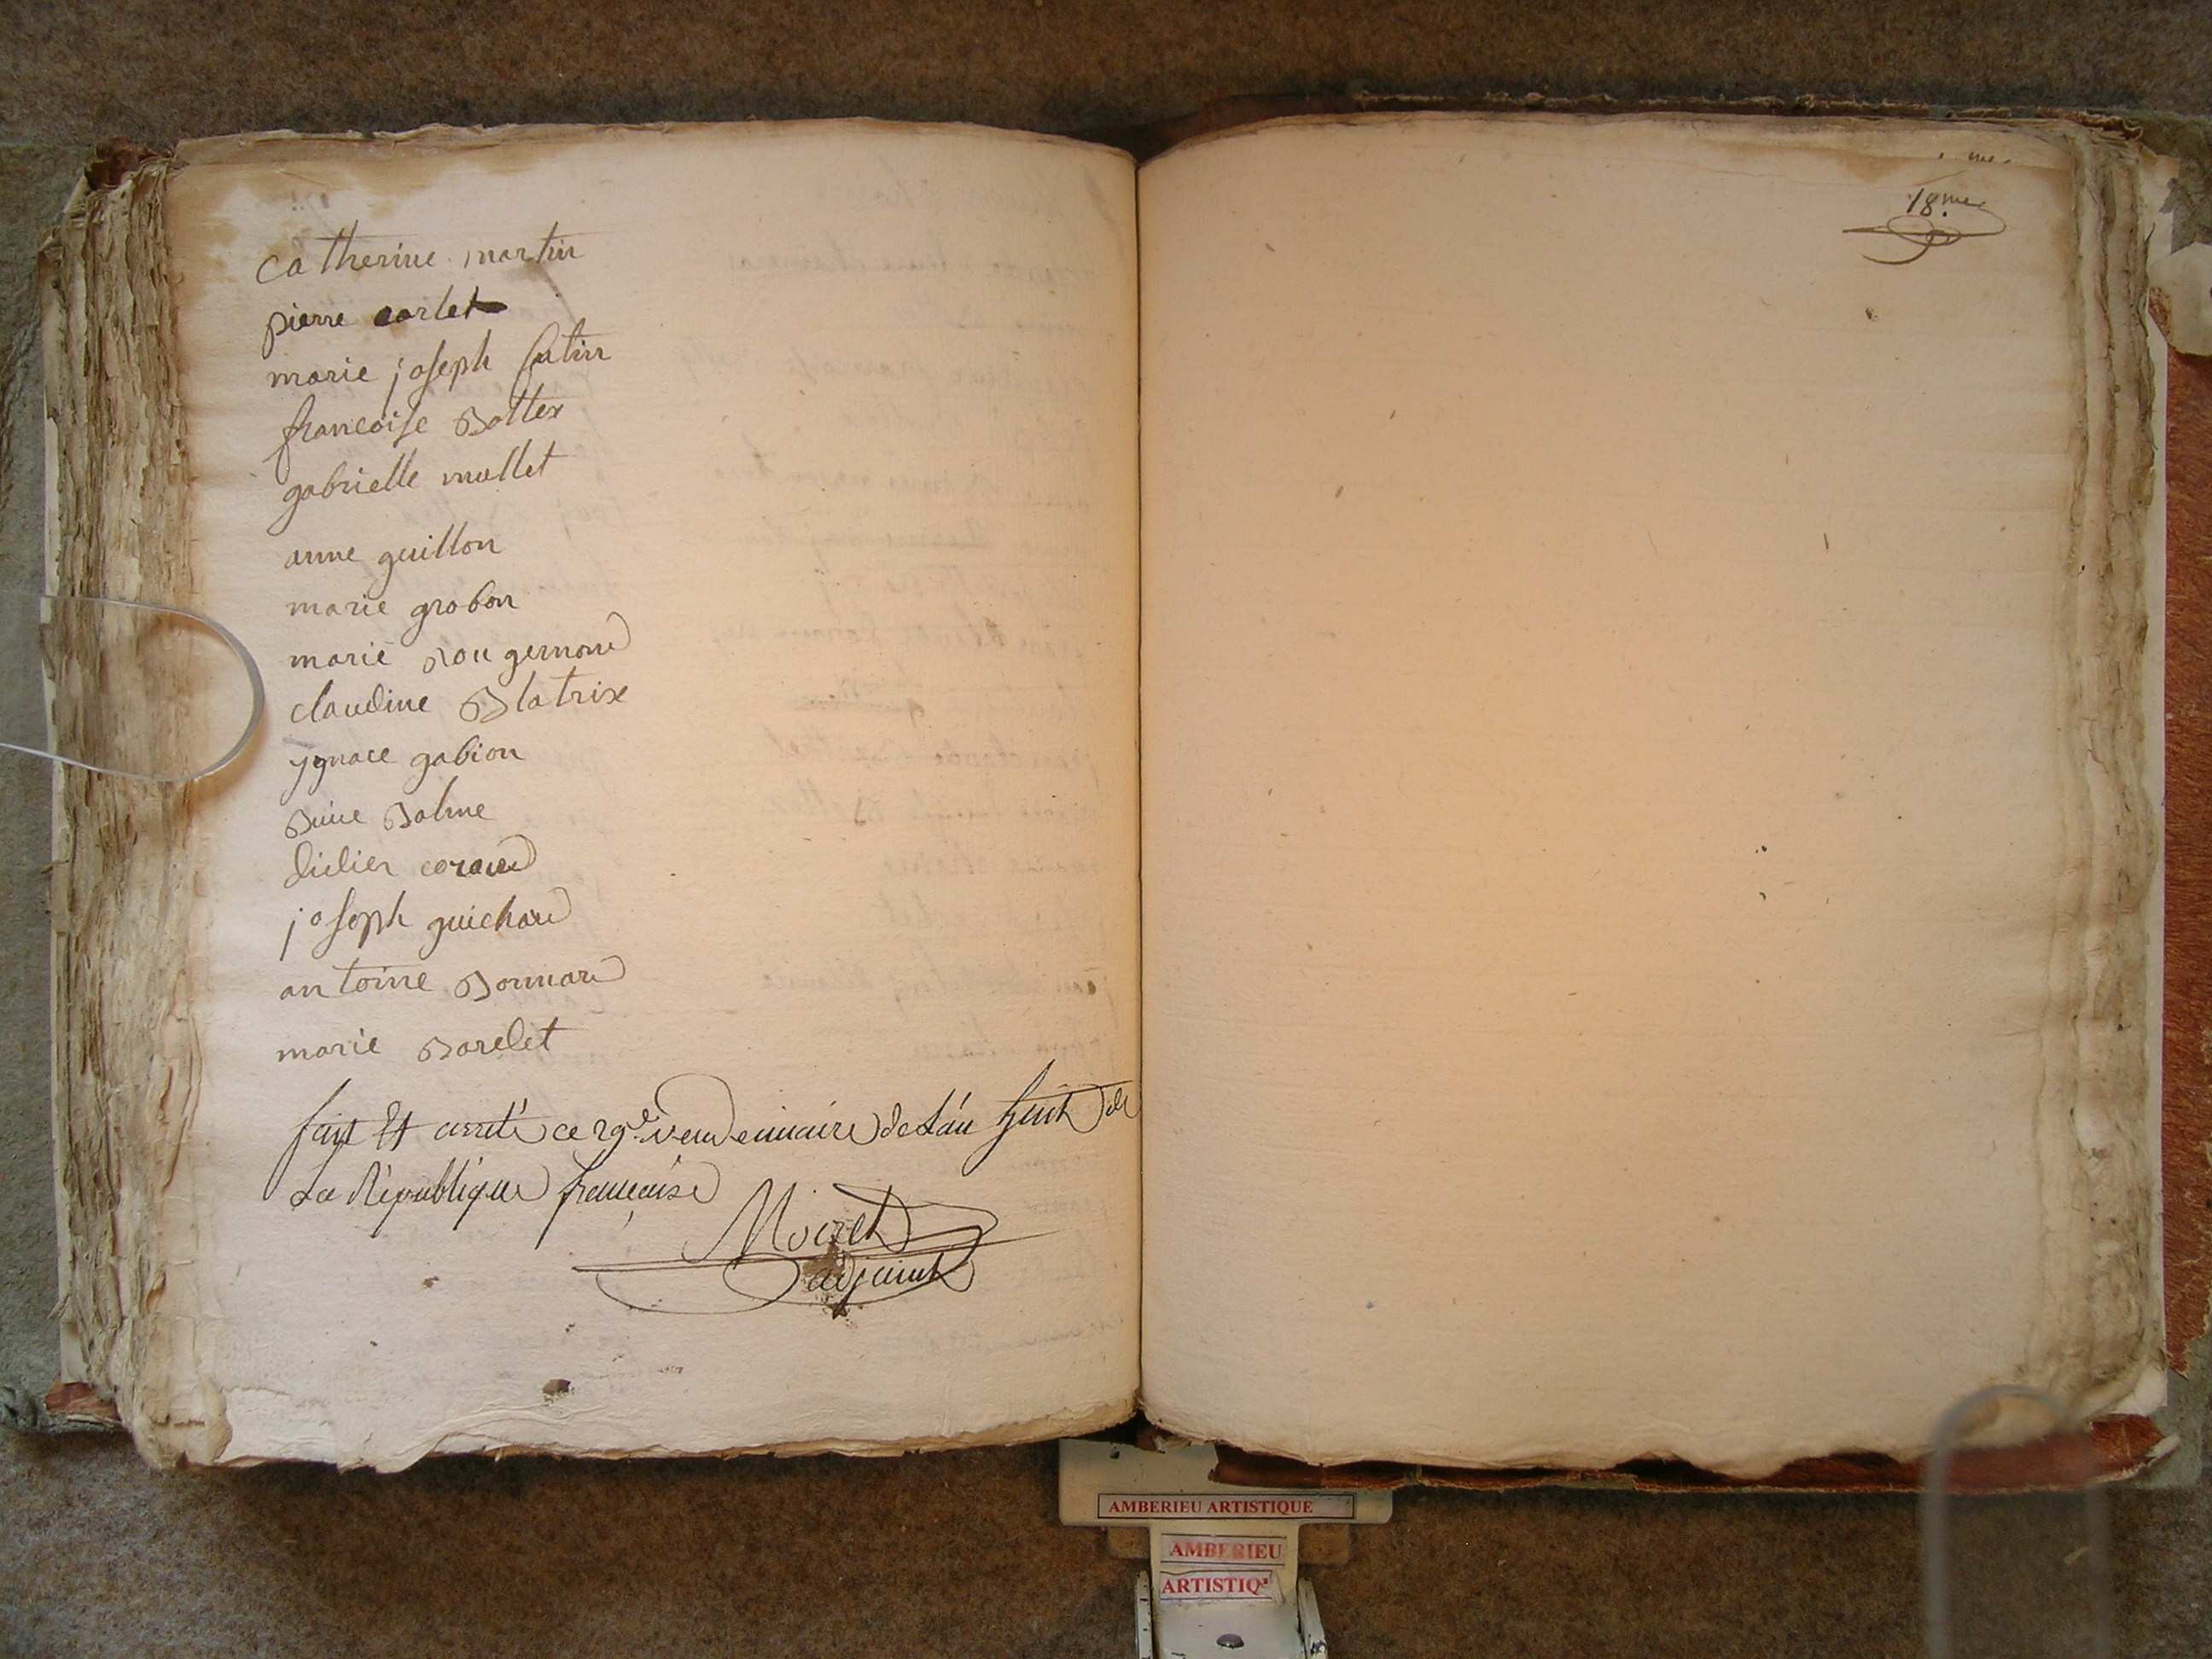 catherine martin
pierre carlet
marie joseph
francoise Bottex
gabrielle mullet
anne guillon
marie grobon
marie Rougemond
claudine Blatrix
ygnace gabion
Balme
didier
joseph guichard
antoine Bonnard
marie Barelet
fait Et arrété ce 29e. vendemiaire de L'an huit de
La République française
Moiret
adjoint
18.me
AMBERIEU ARTISTIQUE
AMBERIEU
ARTISTIQ